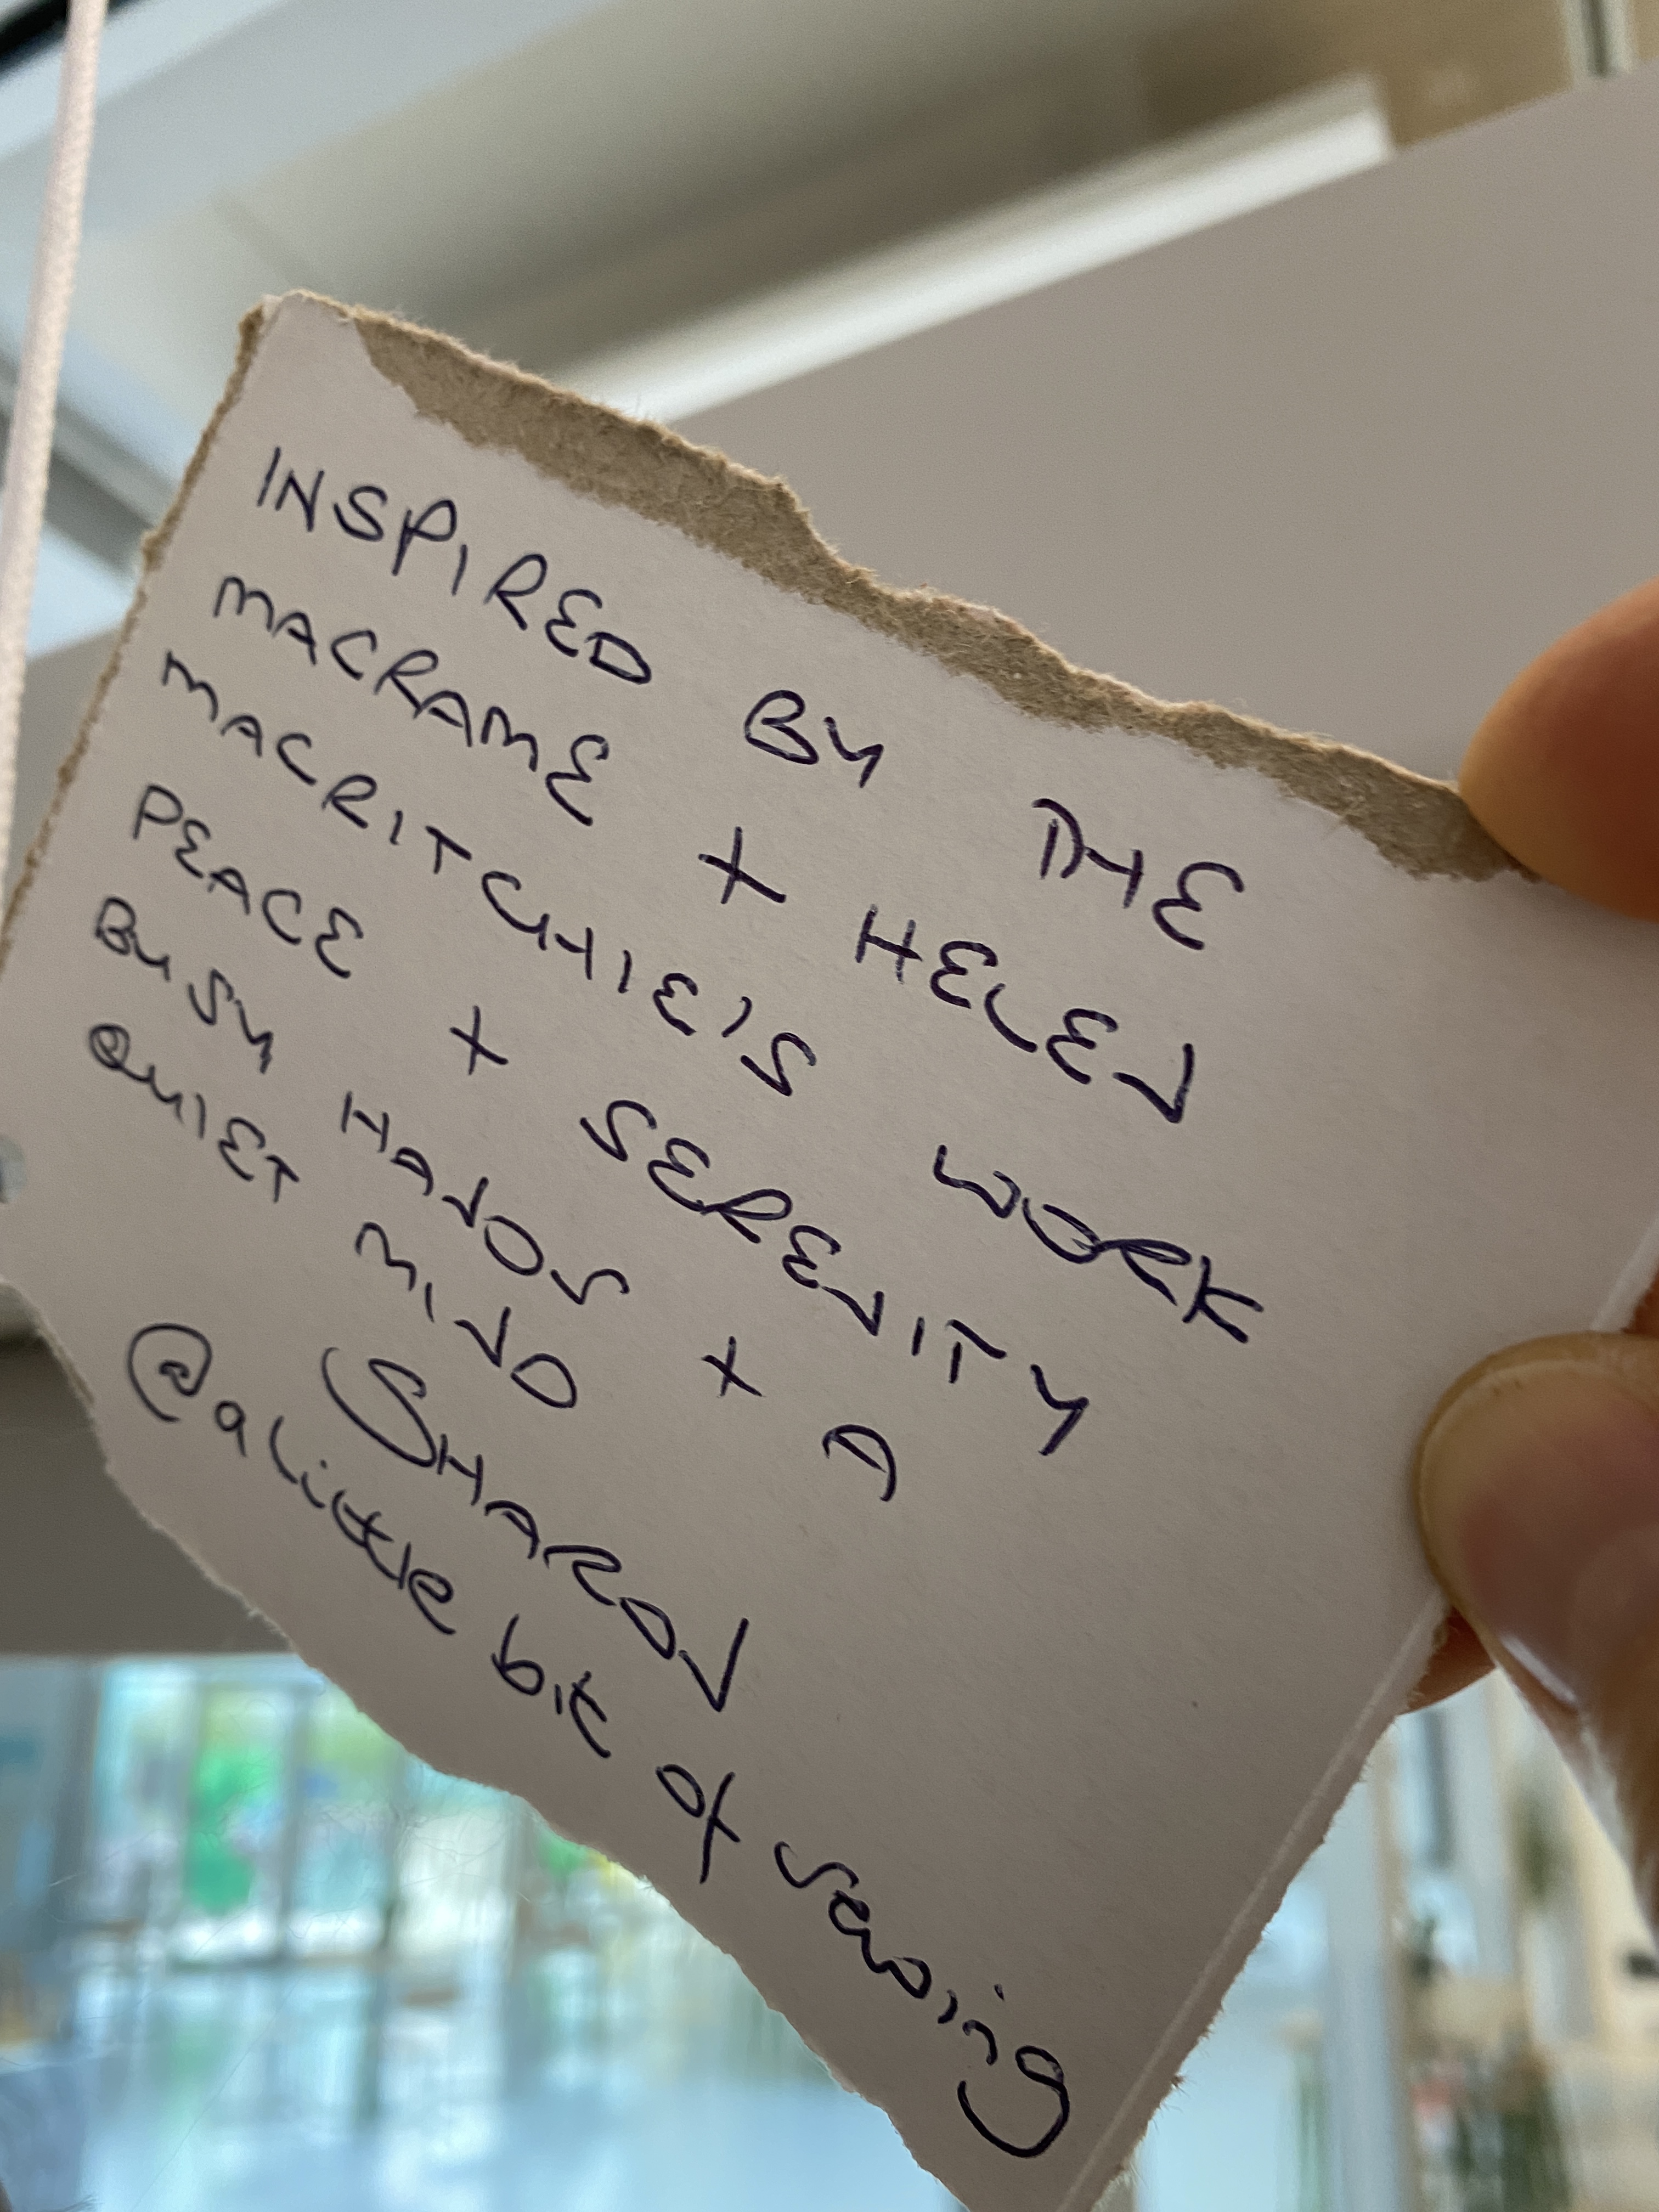 INSPIRED BY THE
MACRAME + HELEN
MACRITCHIE'S WORK
PEACE + SERENITY
BUSY HANDS + A
QUIET MIND
SHARON
@alittle bit of sewing